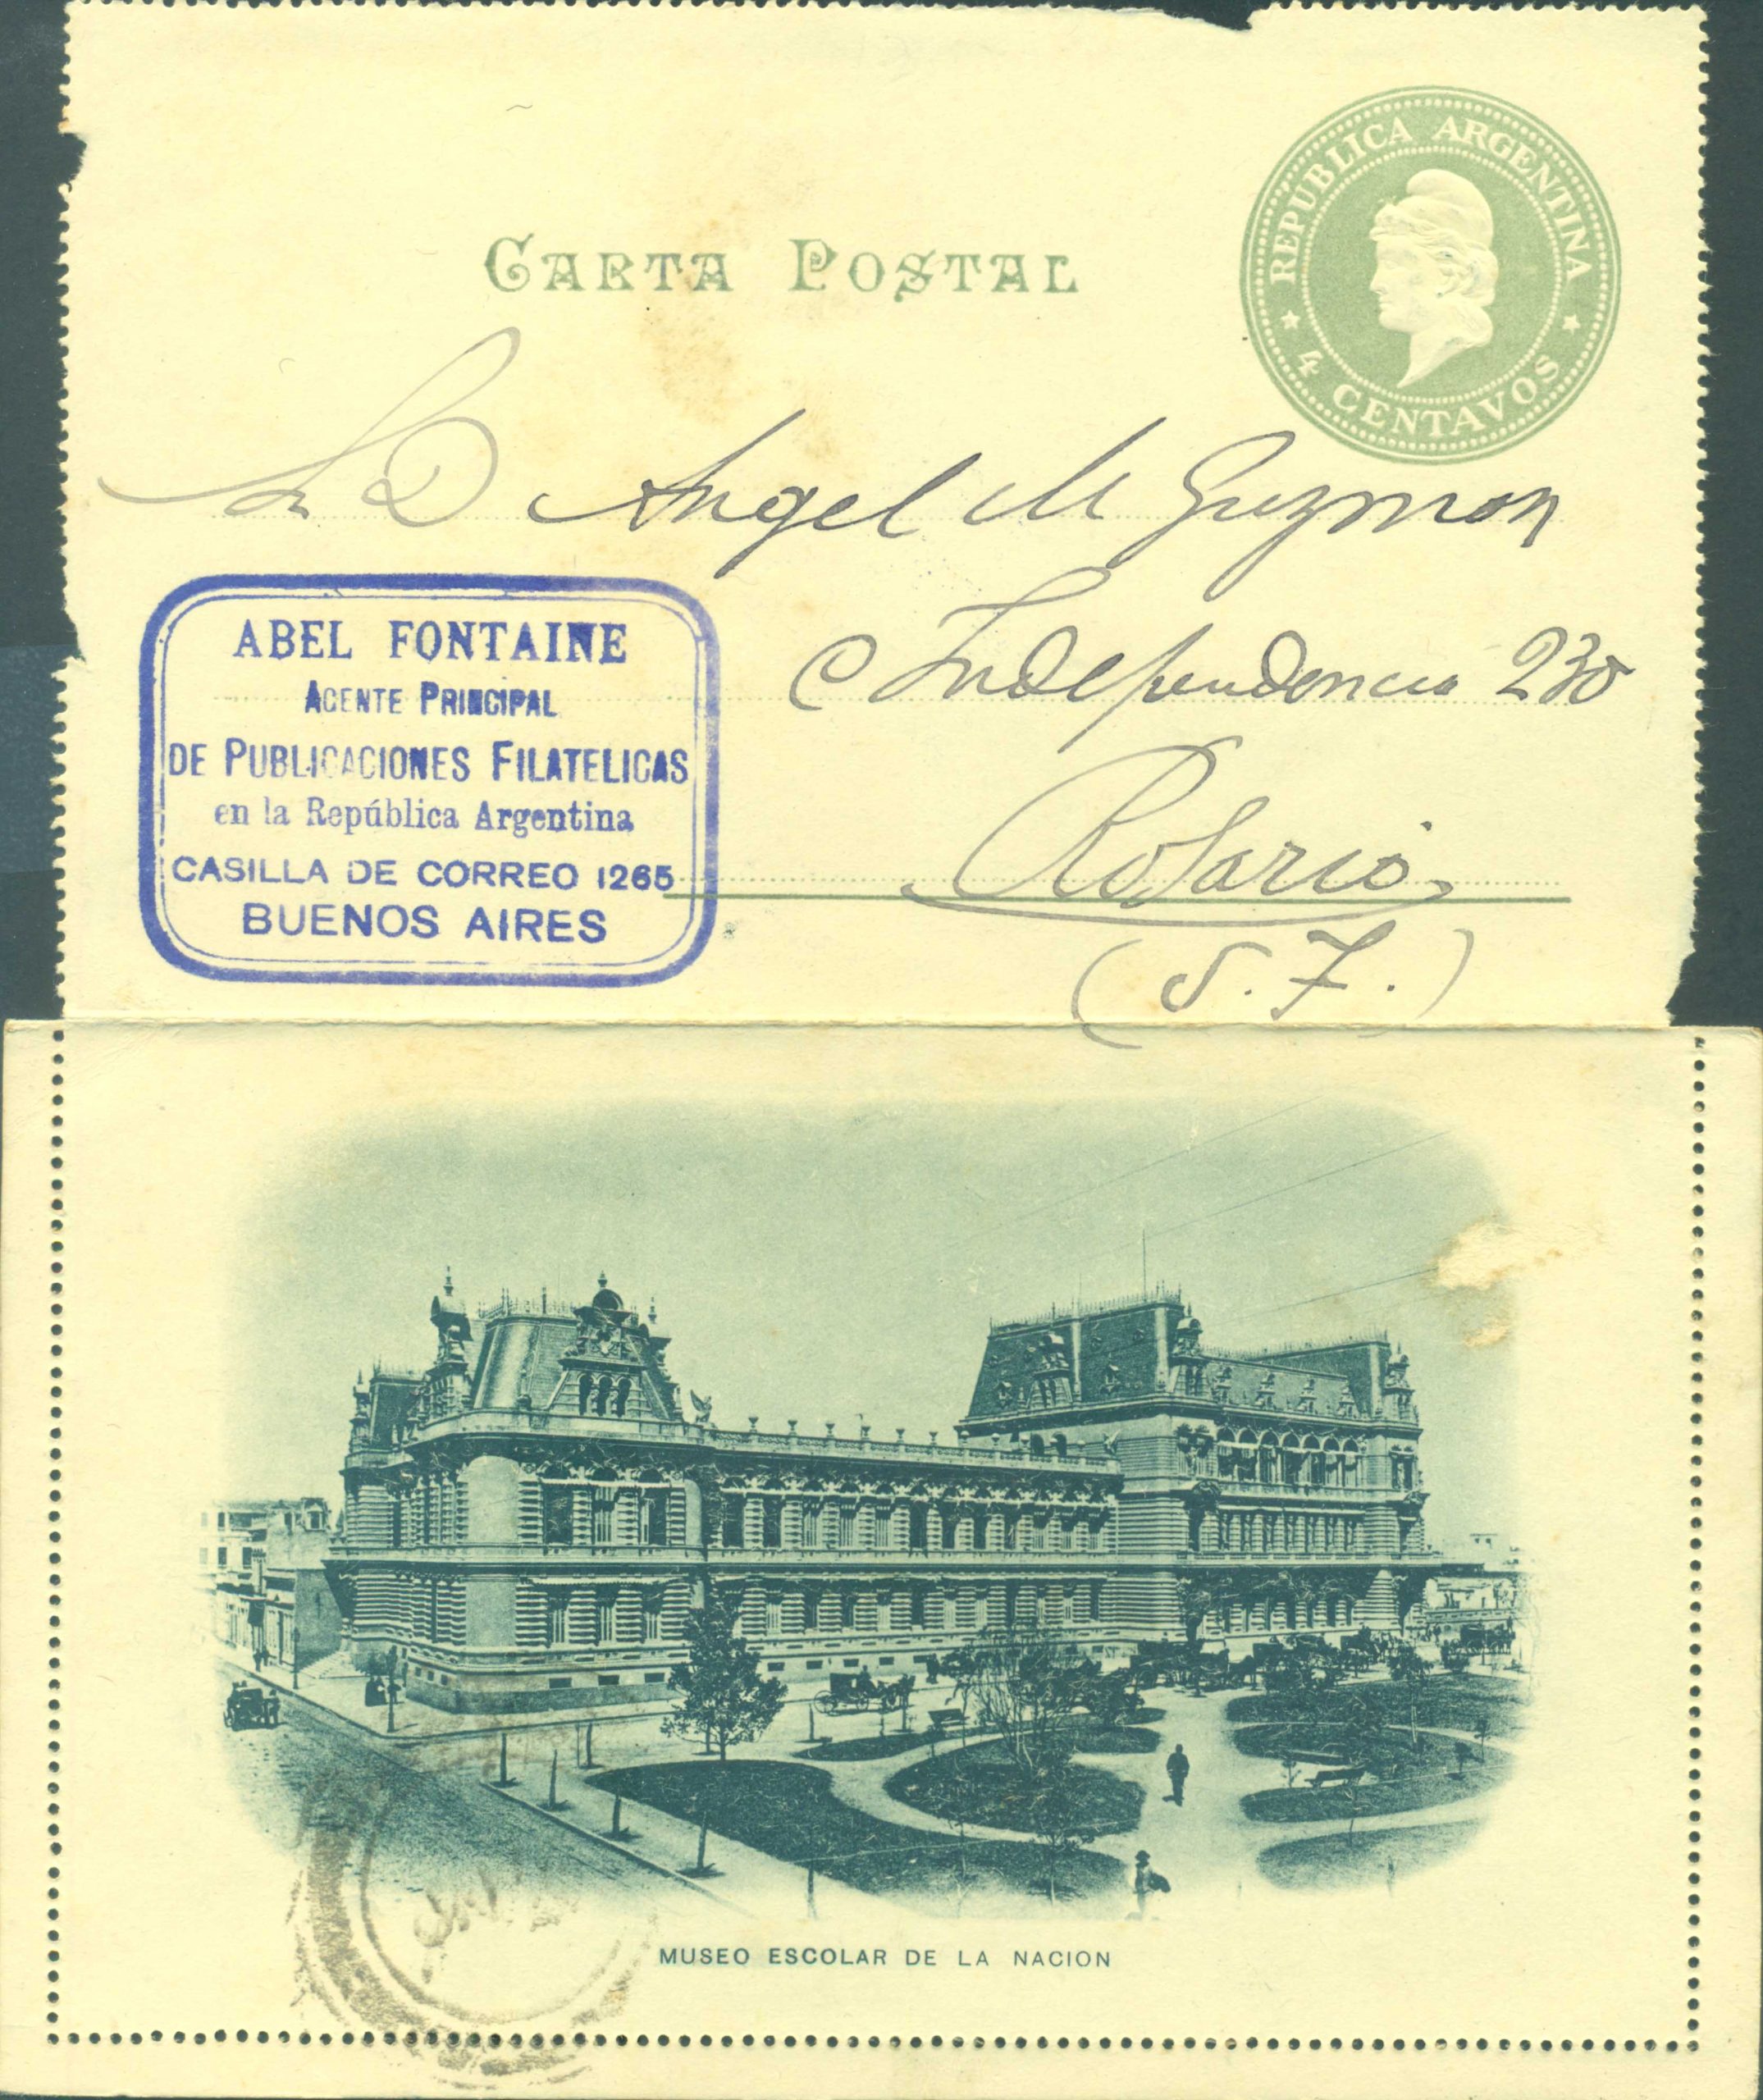 REPUBLICA ARGENTINA
4 CENTAVOS
CARTA POSTAL
Sr D Angel M Guzman
C Independencia 230
Rosario
(S. F.)
ABEL FONTAINE
AGENTE PRINCIPAL
DE PUBLICACIONES FILATELICAS
en la República Argentina
CASILLA DE CORREO 1265
BUENOS AIRES
MUSEO ESCOLAR DE LA NACION